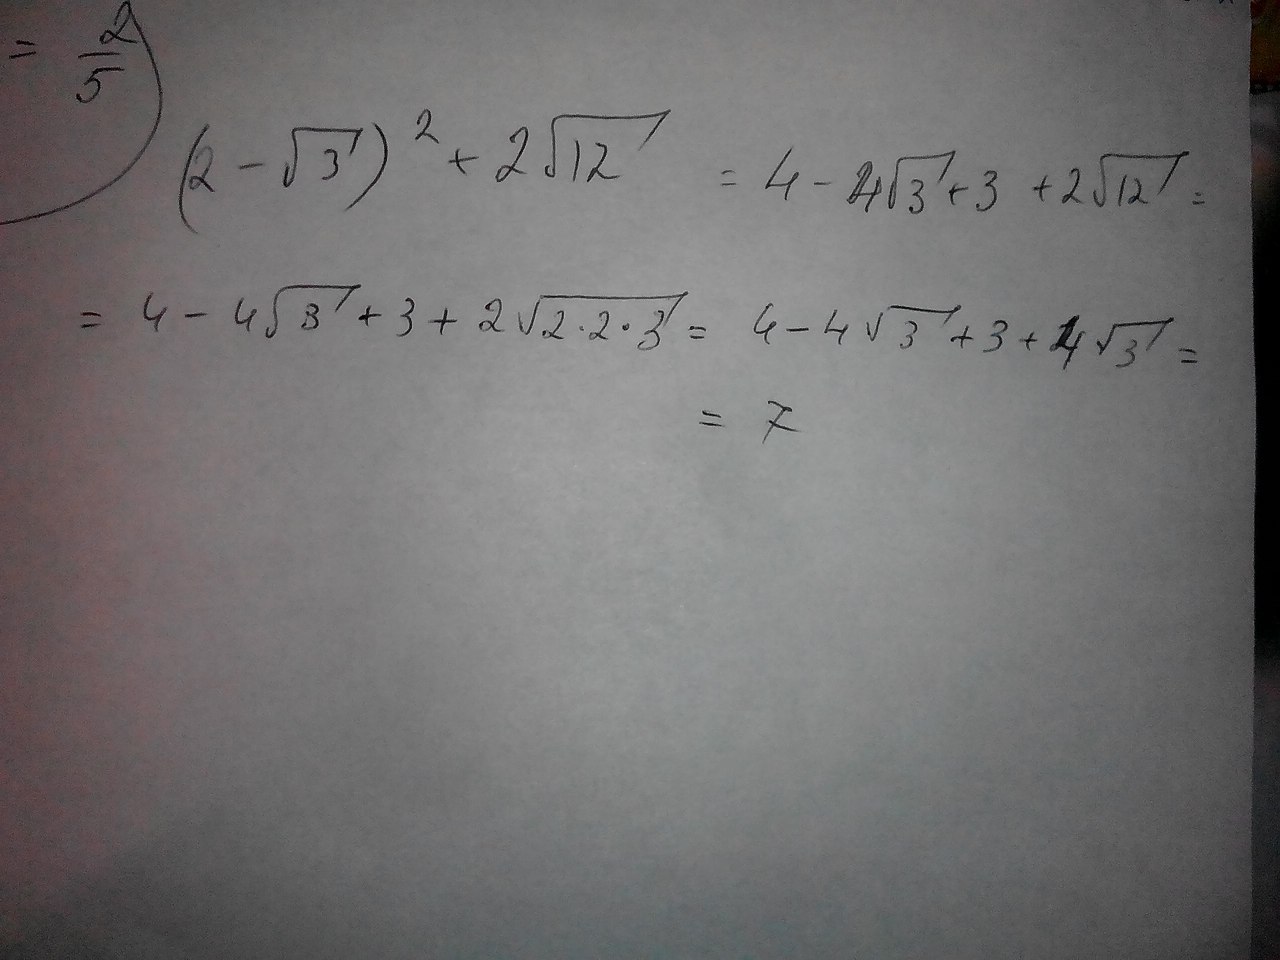 = 2/5
(2 - √3)² + 2√12 = 4 - 4√3 + 3 + 2√12 =
= 4 - 4√3 + 3 + 2√2·2·3 = 4 - 4√3 + 3 + 4√3 =
= 7